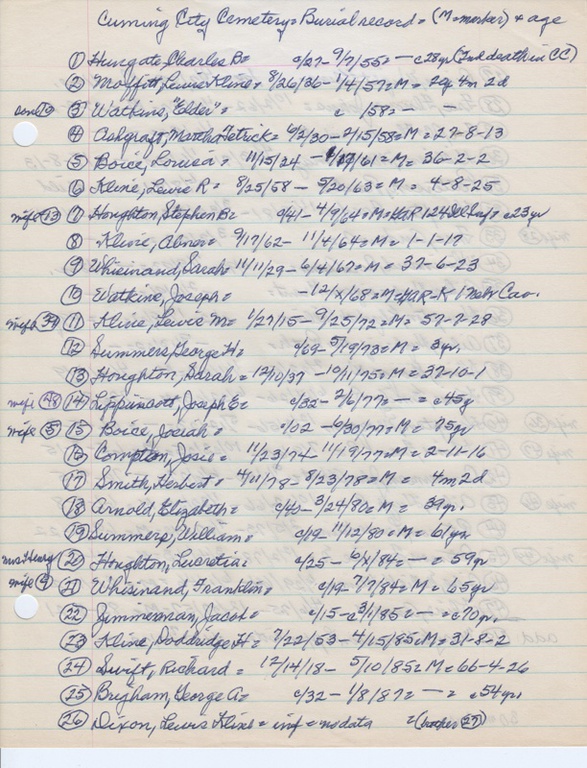 Cuming City Cemetery = Burial record = (M = marker) + age
① Hungate, Charles B = c/27 - 9/7/55 = — c28yr (2nd death in CC)
② Moffitt, Lewis Kline = 8/26/36 - 1/4/57 = M = 20y 4m 2d
③ Watkins, "Elder" = c /58 = — —
④ Ashgraft, Martha Tetrick = 6/2/30 - 2/15/58 = M = 27-8-13
⑤ Boice, Louisa = 11/15/24 - /61 = M = 36-2-2
⑥ Kline, Lewis R = 8/25/58 - 5/20/63 = M = 4-8-25
wife ⑬ ⑦ Houghton, Stephen B = c/41 - 4/9/64 = M = GAR 124 Ill Inf = c23yr
⑧ Kline, Abner = 9/17/62 - 11/4/64 = M = 1-1-17
⑨ Whisinand, Sarah = 11/11/29 - 6/4/67 = M = 37-6-23
⑩ Watkins, Joseph = -12/x/68 = M = GAR-K 1 Nebr Cav.
wife ㊴ ⑪ Kline, Lewis M = 1/27/15 - 9/25/72 = M = 57-7-28
⑫ Summers, George H = c/69 - 5/19/73 = M = 3yr.
⑬ Houghton, Sarah = 12/10/37 - 10/11/75 = M = 37-10-1
wife ㊽ ⑭ Lippincott, Joseph E = c/32 - 2/6/77 = — = c45y
wife ⑤ ⑮ Boice, Josiah = c/02 - 6/30/77 = M = 75yr
⑯ Compton, Josie = 11/23/74 - 11/19/77 = M = 2-11-16
⑰ Smith, Herbert = 4/11/78 - 8/23/78 = M = 4m 2d
⑱ Arnold, Elizabeth = c/40 - 3/24/80 = M = 39yr.
⑲ Summers, William = c/19 - 11/12/80 = M = 61yr.
mrs. Henry ⑳ Houghton, Lucretia = c/25 - 6/x/84 = — = 59yr
wife ⑨ ㉑ Whisinand, Franklin = c/19 - 7/7/84 = M = 65yr
㉒ Zimmerman, Jacob = c/15 - c3/1/85 = — = c70yr.
㉓ Kline, Doddridge H = 7/22/53 - 4/15/85 = M = 31-8-2
㉔ Swift, Richard = 12/14/18 - 5/10/85 = M = 66-4-26
㉕ Brigham, George A = c/32 - 1/8/87 = — = c54yr.
㉖ Dixon, Lewis Kline = inf = no data = (brother ㉗)